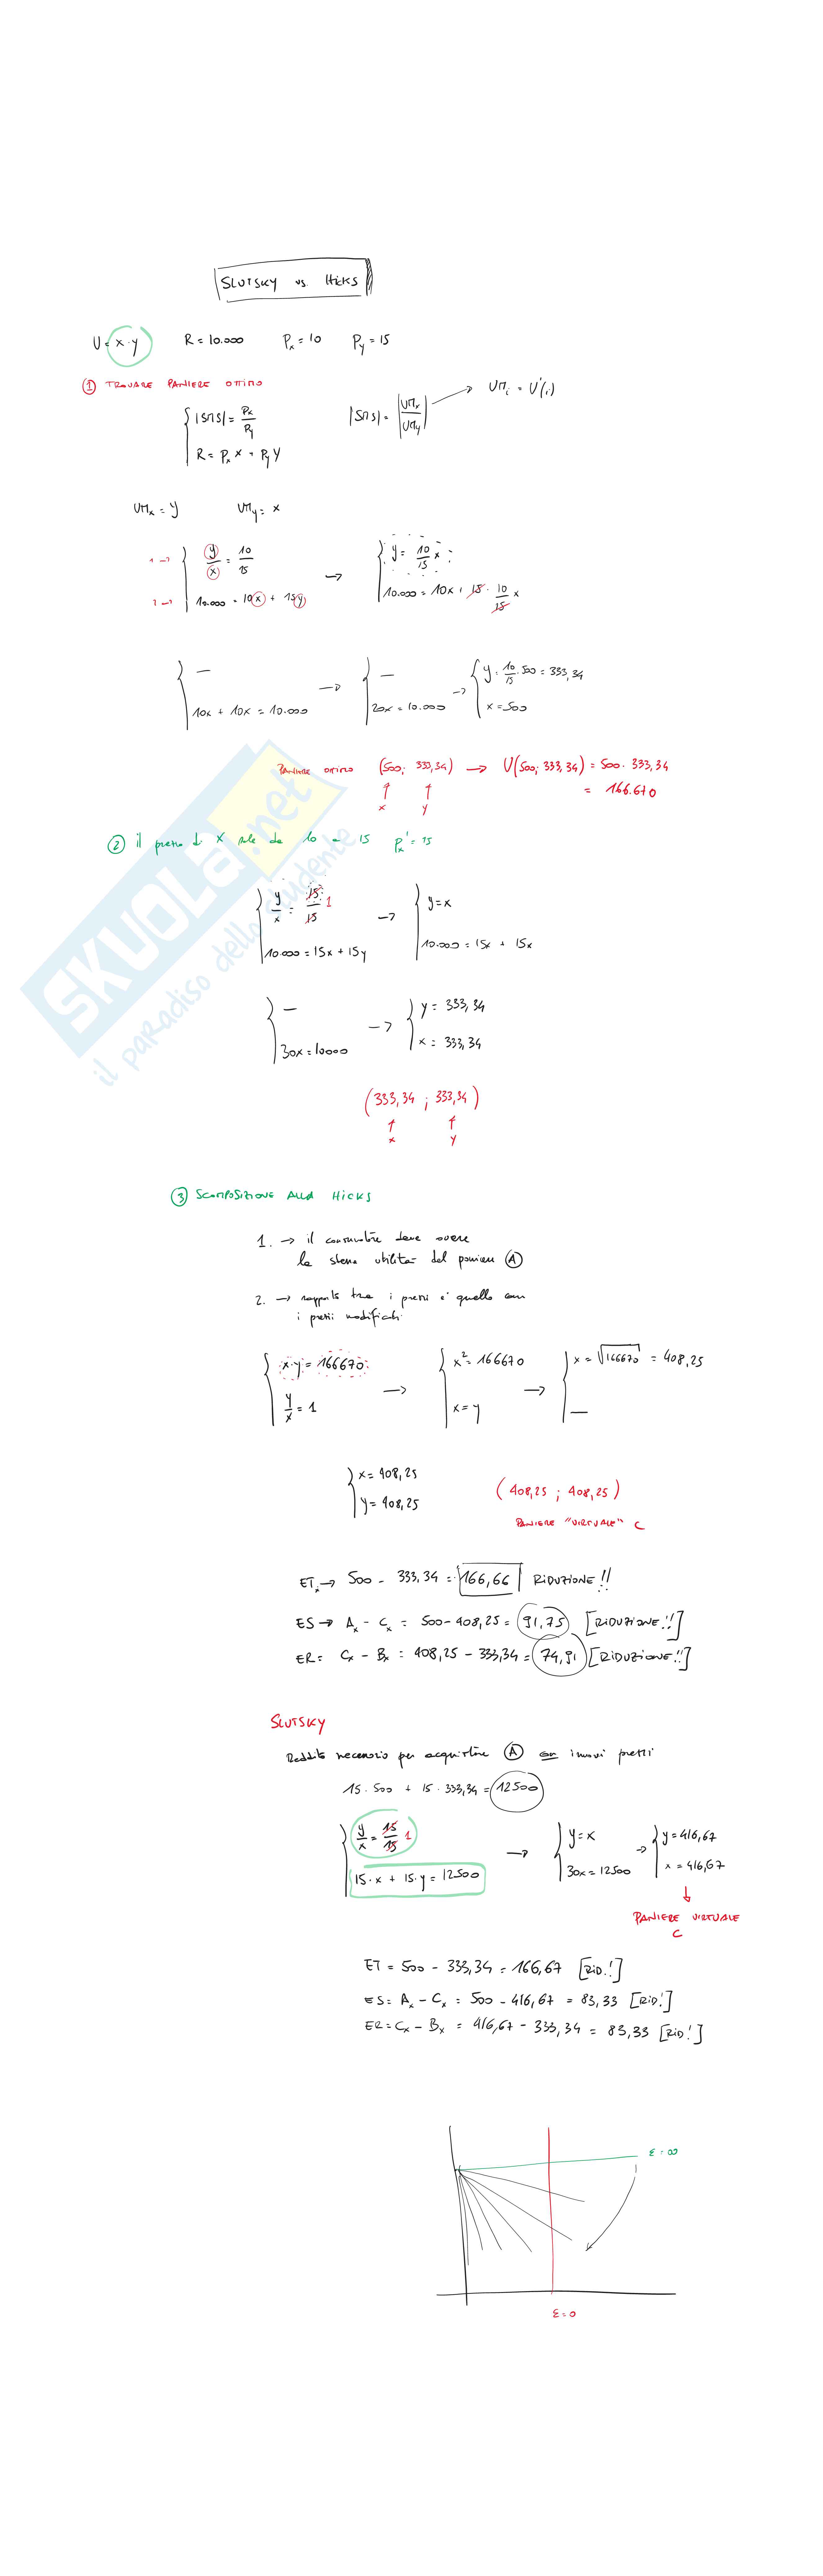 SLUTSKY vs. HICKS
U = x·y R = 10.000 Px = 10 Py = 15
① TROVARE PANIERE OTTIMO
|SMS| = Px/Py |SMS| = |UMx/UMy| → UMi = U'(i)
R = Px X + Py Y
UMx = y UMy = x
1 → y/x = 10/15 → y = 10/15 x
2 → 10.000 = 10x + 15y 10.000 = 10x + 15 · 10/15 x
— → — → y = 10/15 · 500 = 333,34
10x + 10x = 10.000 20x = 10.000 x = 500
PANIERE OTTIMO (500; 333,34) → U(500; 333,34) = 500 · 333,34
= 166.670
x y
② il prezzo di X sale da 10 a 15 Px' = 15
y/x = 15/15 1 → y = x
10.000 = 15x + 15y 10.000 = 15x + 15x
— → y = 333,34
30x = 10000 x = 333,34
(333,34 ; 333,34)
x y
③ SCOMPOSIZIONE ALLA HICKS
1. → il consumatore deve avere
la stessa utilità del paniere Ⓐ
2. → rapporto tra i prezzi è quello con
i prezzi modificati
x·y = 166670 → x² = 166670 → x = √166670 = 408,25
y/x = 1 x = y —
x = 408,25
y = 408,25 (408,25 ; 408,25)
PANIERE "VIRTUALE" C
ETx → 500 - 333,34 = 166,66 RIDUZIONE!!
ES → Ax - Cx = 500 - 408,25 = 91,75 [RIDUZIONE!!]
ER = Cx - Bx = 408,25 - 333,34 = 74,91 [RIDUZIONE!!]
SLUTSKY
Reddito necessario per acquistare Ⓐ con i nuovi prezzi
15 · 500 + 15 · 333,34 = 12500
y/x = 15/15 1 → y = x → y = 416,67
15·x + 15·y = 12500 30x = 12500 x = 416,67
PANIERE VIRTUALE
C
ET = 500 - 333,34 = 166,67 [RID!]
ES = Ax - Cx = 500 - 416,67 = 83,33 [RID!]
ER = Cx - Bx = 416,67 - 333,34 = 83,33 [RID!]
ε = ∞
ε = 0
SKUOLA.net
il paradiso dello studente